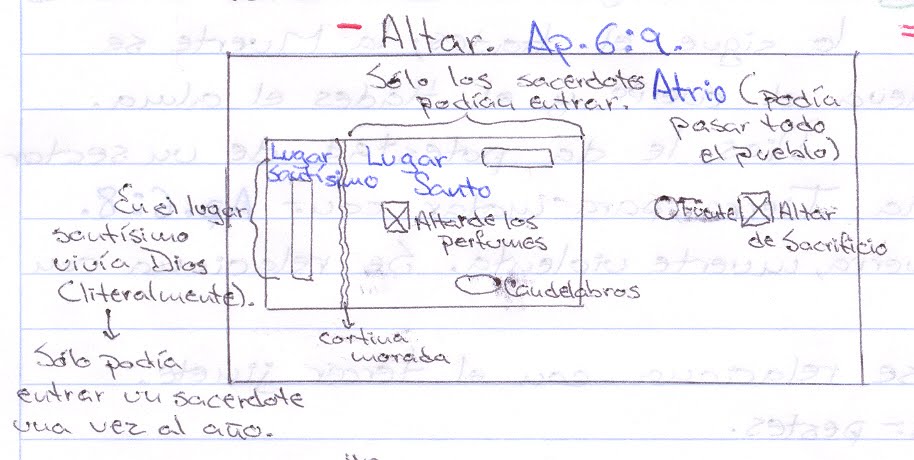 - Altar. Ap. 6:9.
Sólo los sacerdotes
podían entrar.
Atrio (podía
pasar todo
el pueblo)
Lugar
Santísimo
Lugar
Santo
En el lugar
santísimo
vivía Dios
(literalmente).
Altar de los
perfumes
Fuente
Altar
de Sacrificio
Candelabros
cortina
morada
Sólo podía
entrar un sacerdote
una vez al año.